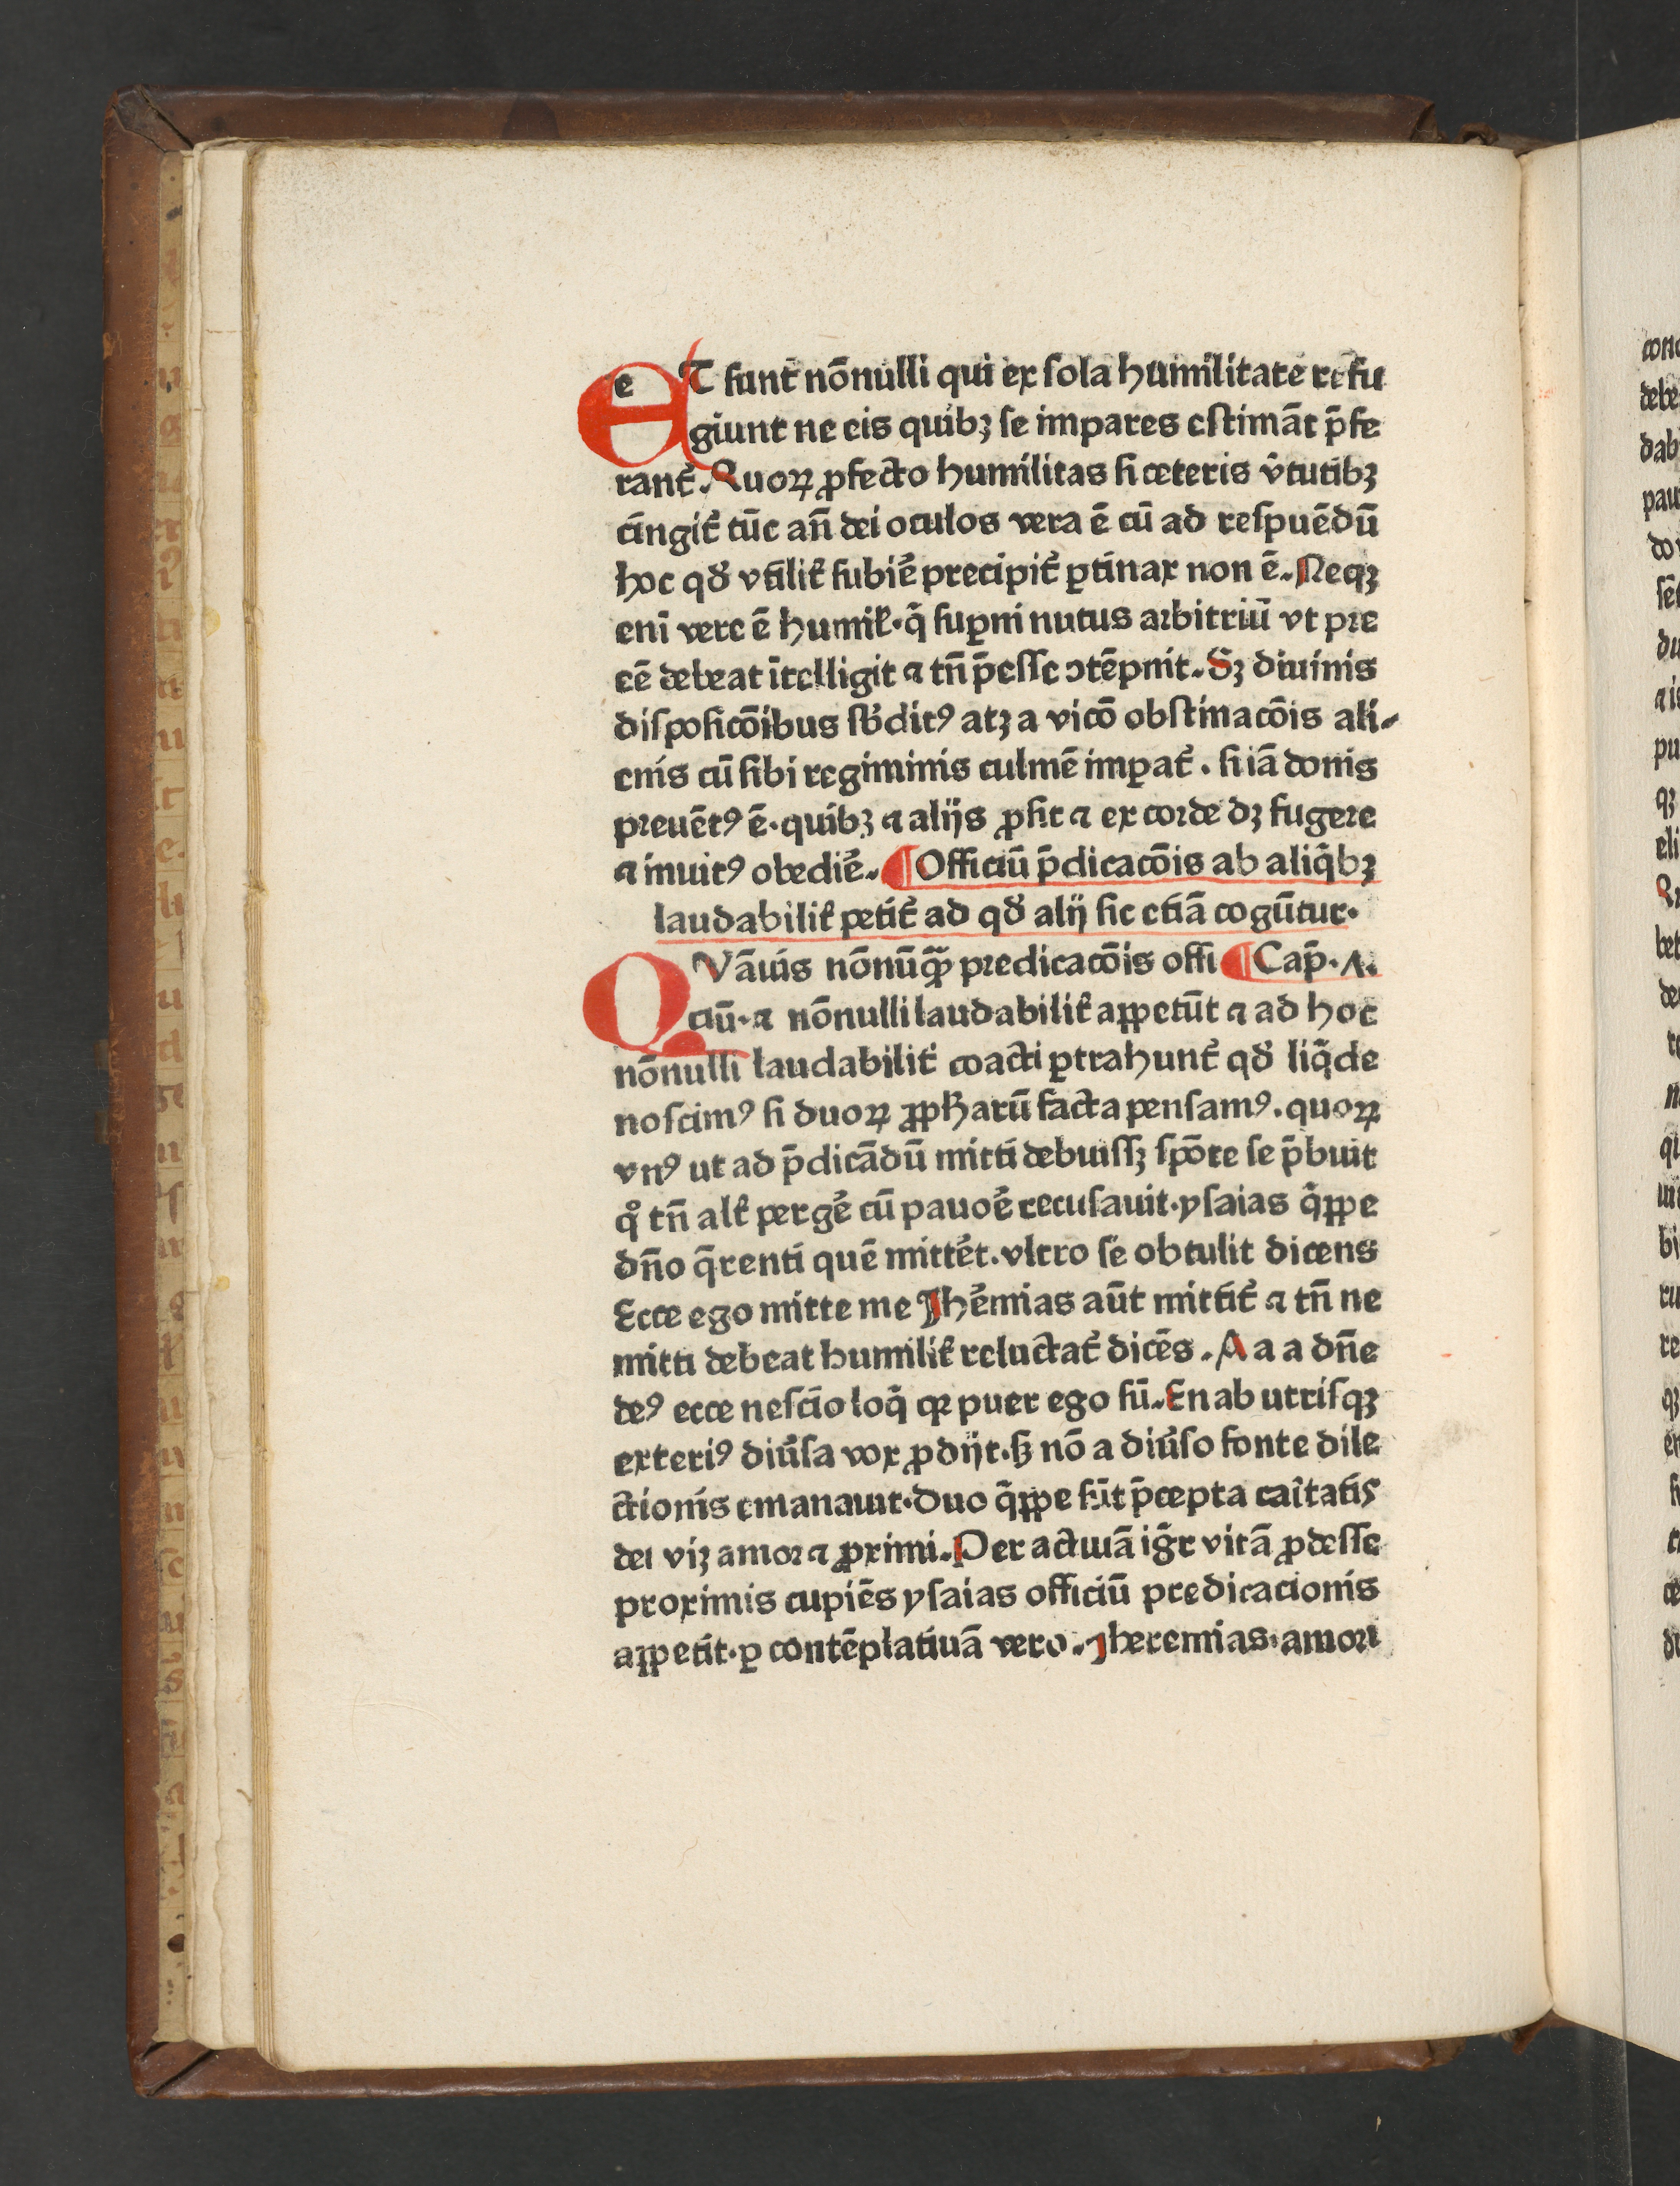 ET sunt̄ nōnulli qui ex sola humilitate refu
giunt ne eis quibꝫ se impares estimāt p̄fe
rant̄. Quoꝝ ꝓfecto humilitas si ceteris v̓tutibꝫ
cingit̄ tūc an̄ dei oculos vera ē cū ad respuēdū
hoc qd̓ vtilit̓ subiē precipit̄ ꝑtinax non ē. Neqꝫ
enī vere ē humil̓·q̄ suꝑni nutus arbitriū vt pre
eē debeat ītelligit ⁊ tn̄ p̄esse ↄtēpnit. Sꝫ diuinis
disposicōibus sb̓ditꝰ atꝫ a vicō obstinacōis ali-
enis cū sibi regiminis culmē imꝑat̄. si iā donis
preuētꝰ ē·quibꝫ ⁊ alijs ꝓsit ⁊ ex corde dꝫ fugere
⁊ inuitꝰ obediē. ¶ Officiū p̄dicacōis ab aliq̄bꝫ
laudabilit̓ petit̄ ad qd̓ alij sic etiā cogūtur·
QVāuis nōnūqꝫ̄ predicacōis offi ¶ Cap̄. ʌ.
ciū·⁊ nōnulli laudabilit̓ aꝑpetūt ⁊ ad hoc
nōnulli laudabilit̓ coacti ꝑtrahunt̄ qd̓ liq̄de
noscimꝰ si duoꝝ ꝓpħarū facta pensamꝰ. quoꝝ
vnꝰ ut ad p̄dicādū mitti debuissꝫ spōte se p̄buit
qͦ tn̄ alt̓ pergē cū pauoē recusauit·ysaias q̄ppe
dn̄o q̄renti quē mittēt. vltro se obtulit dicens
Ecce ego mitte me Jhēmias aūt mittit̄ ⁊ tn̄ ne
mitti debeat humilit̓ reluctat̄ dicēs. A a a dn̄e
deꝰ ecce nescio loq̄ qꝛ puer ego sū. En ab utrisqꝫ
exteriꝰ diūsa vox ꝓdijt·sꝫ nō a diūso fonte dile
ctionis emanauit·duo q̄ppe sūt p̄cepta caītatis
dei viꝫ amor ⁊ ꝓximi. Per actiuā iḡr vitā ꝓdesse
proximis cupiēs ysaias officiū predicacionis
appetit·ꝑ contēplatiuā vero. Jheremias·amori